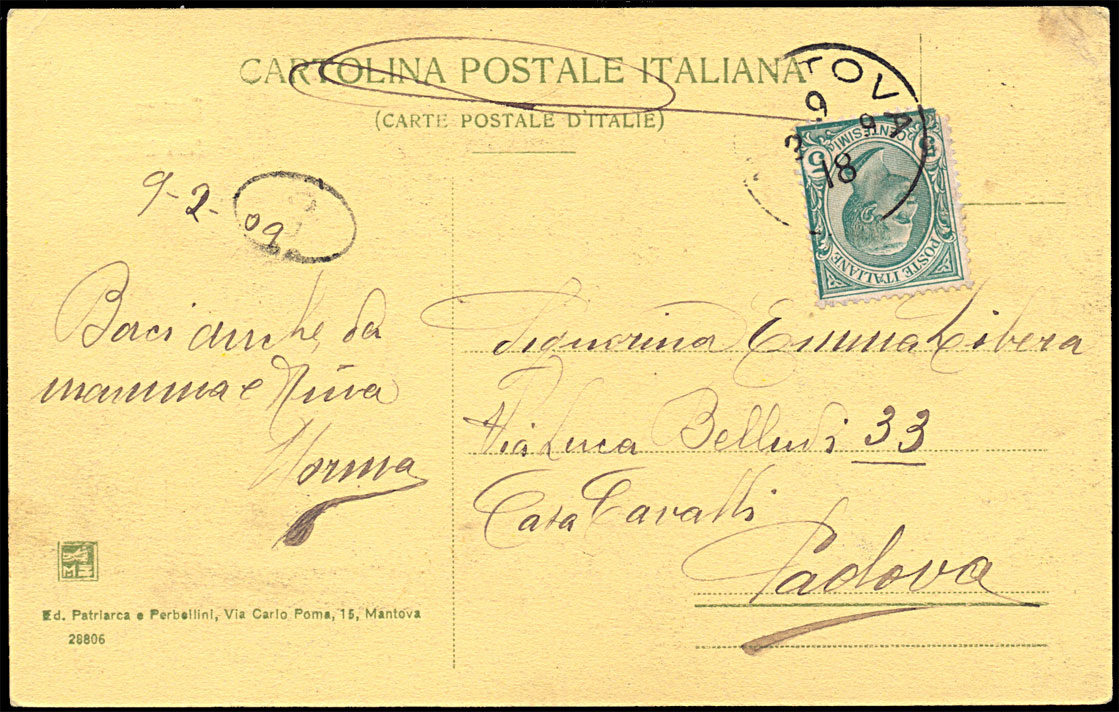 CARTOLINA POSTALE ITALIANA
(CARTE POSTALE D'ITALIE)
TOVA
9
2 9
18
5 CENTESIMI 5
POSTE ITALIANE
9-2-09
Baci anche da
mamma e Nina
Norma
Signorina Emma Libera
Via Luca Belludi 33
Casa Cavalli
Padova
Ed. Patriarca e Perbellini, Via Carlo Poma, 15, Mantova
28806